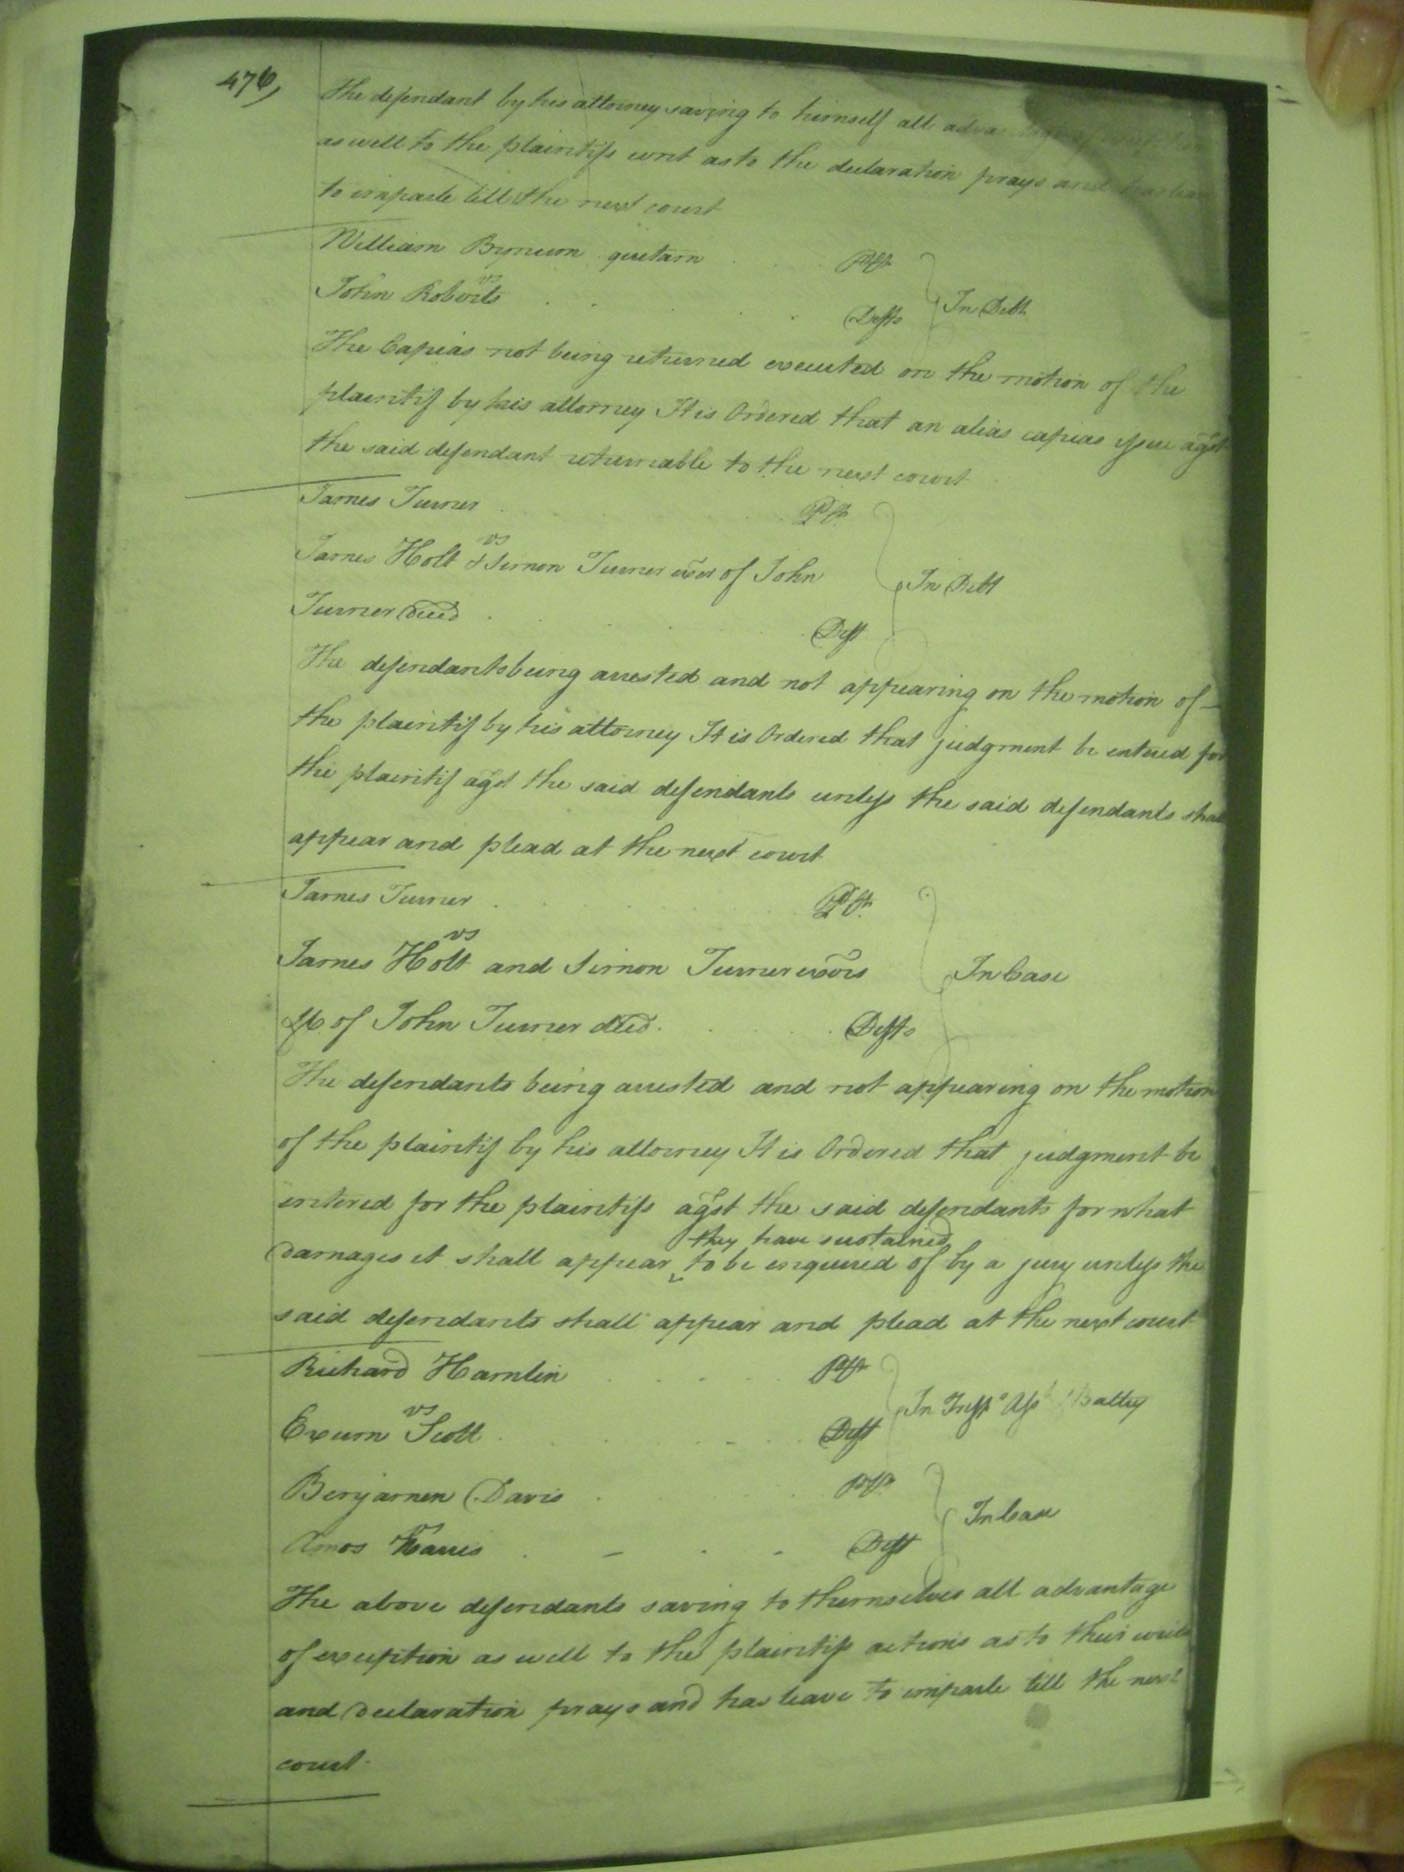 476,
The defendant by his attorney saving to himself all
as well to the plaintifs writ as to the declaration prays and has
to imparle till the next court
William Bynum quitam Plt
vs
John Roberts Defts In Debt
The Capias not being returned executed on the motion of the
plaintif by his attorney It is Ordered that an alias capias issue agst
the said defendant returnable to the next court
James Turner Plt
vs
James Holt & Simon Turner exor of John In Debt
Turner decd Deft
The defendants being arrested and not appearing on the motion of
the plaintif by his attorney It is Ordered that judgment be entered for
the plaintif agst the said defendants unless the said defendants shall
appear and plead at the next court
James Turner Plt
vs
James Holt and Simon Turner exors In Case
&c of John Turner decd. Defts
The defendants being arrested and not appearing on the motion
of the plaintif by his attorney It is Ordered that judgment be
entered for the plaintifs agst the said defendants for what
they have sustained
damages it shall appear ‸ to be enquired of by a jury unless the
said defendants shall appear and plead at the next court
Richard Hamlin Plt
vs In Tresps Ass Battey
Exum Scott Deft
Benjamen Davis Plt
vs In Case
Amos Harris Deft
The above defendants saving to themselves all advantage
of exception as well to the plaintifs actions as to their writs
and declaration prays and has leave to imparle till the next
court